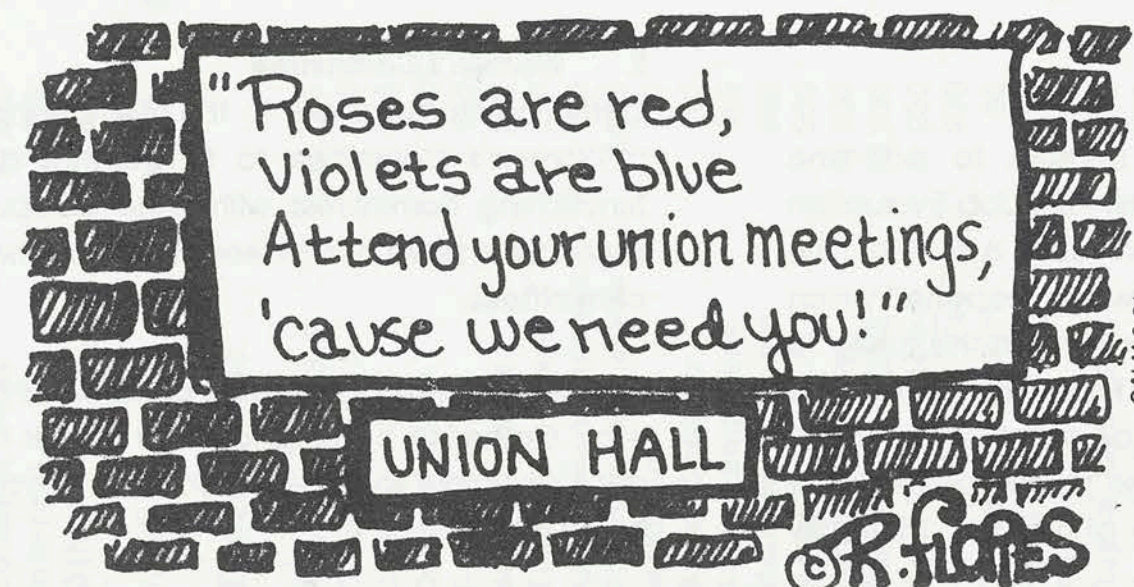 "Roses are red,
Violets are blue
Attend your union meetings,
'cause we need you!"
UNION HALL
©R. Flores